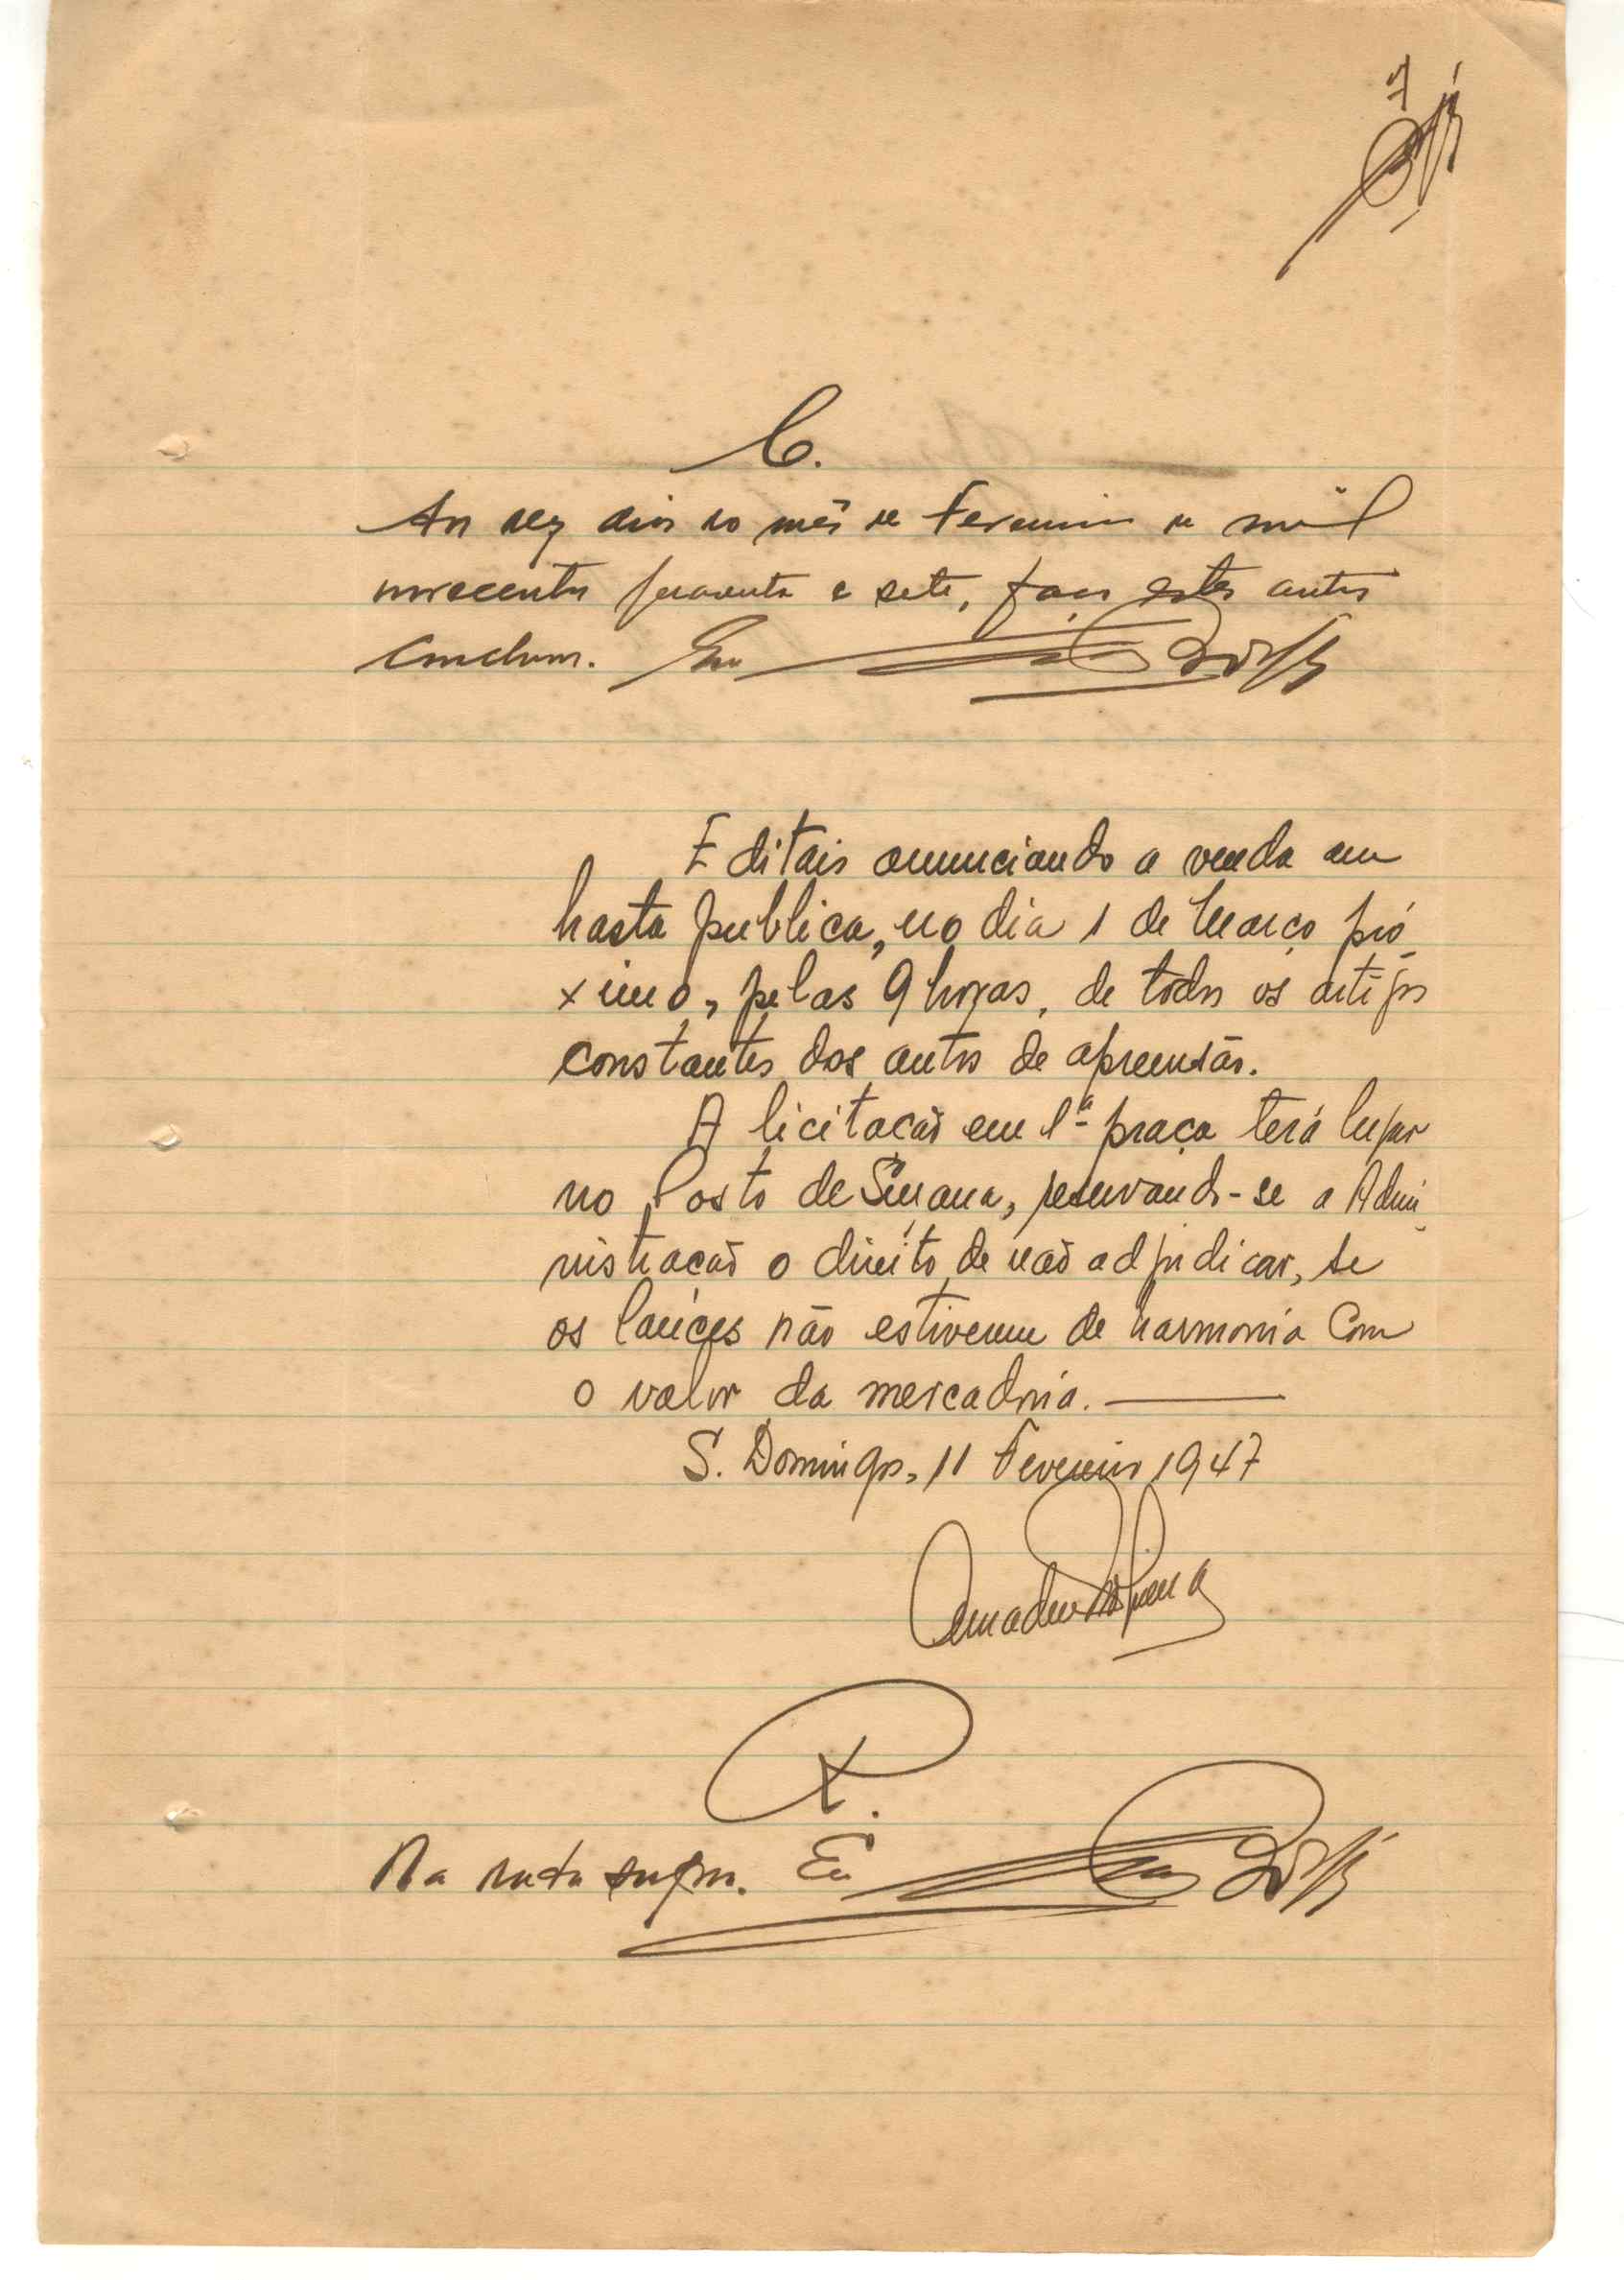 7
C.
Aos dez dias do mês de Fevereiro de mil
novecentos quarenta e sete, faço estes autos
conclusos. Eu
Editais anunciando a venda em
hasta publica, no dia 1 de Março pró
ximo, pelas 9 horas, de todos os artigos
constantes dos autos de apreensão.
A licitação em 1ª praça terá lugar
no Posto de Suzana, reservando-se a Admi
nistração o direito de não adjudicar, se
os lances não estiverem de harmonia com
o valor da mercadoria.
S. Domingos, 11 Fevereiro 1947
Amadeu
R.
Na data supra. Eu